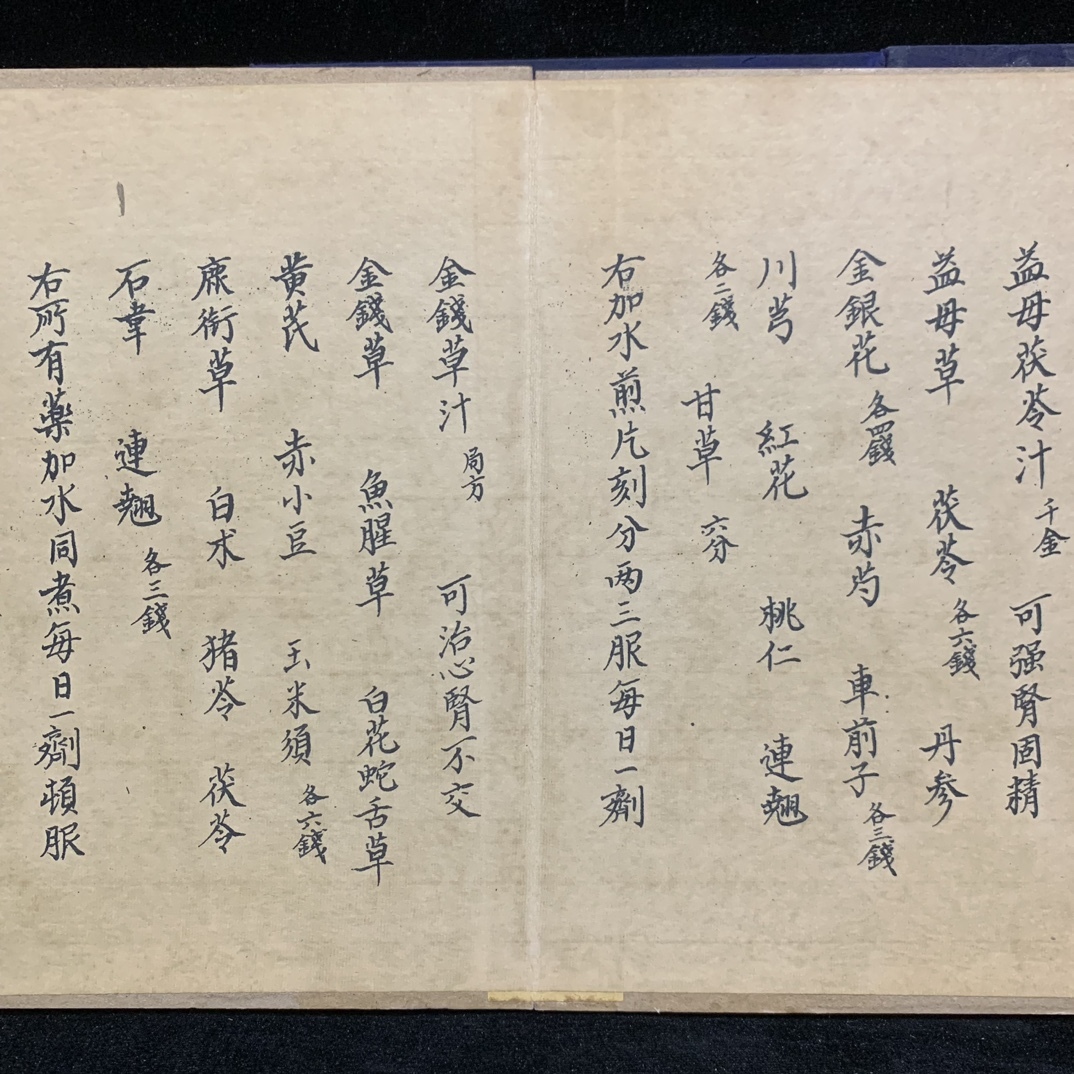 益母茯苓汁 千金 可强腎固精
益母草 茯苓 各六錢 丹参
金銀花 各四錢 赤芍 車前子 各三錢
川芎 紅花 桃仁 連翹
各二錢 甘草 六分
右加水煎片刻分两三服每日一劑
金錢草汁 局方 可治心腎不交
金錢草 魚腥草 白花蛇舌草
黄芪 赤小豆 玉米須 各六錢
鹿銜草 白术 猪苓 茯苓
石韋 連翹 各三錢
右所有藥加水同煮每日一劑頓服